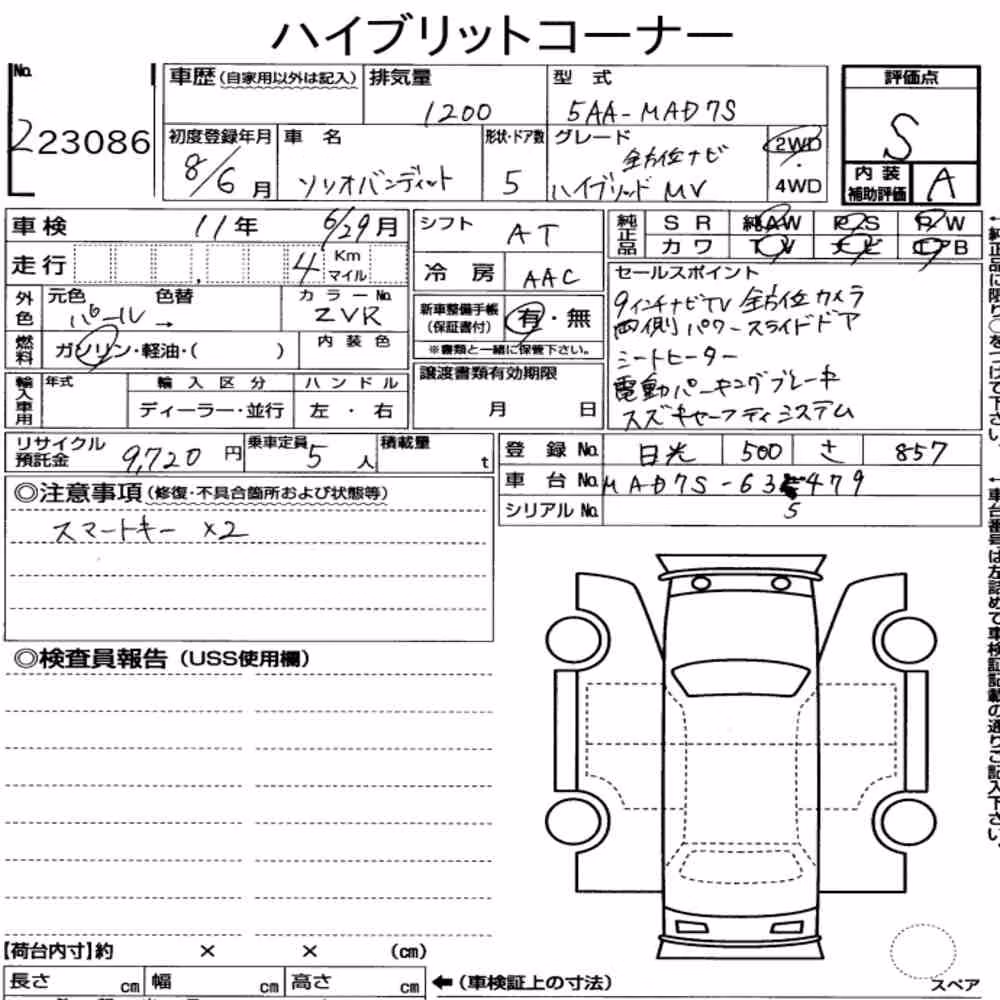 ハイブリットコーナー
No. 223086
車歴(自家用以外は記入) 排気量 1200 型式 5AA-MAD7S
評価点 S
初度登録年月 8/6月 車名 ソリオバンディット 形状・ドア数 5 グレード 全方位ナビ ハイブリッド MV 2WD・4WD
内装補助評価 A
車検 11年 6/29月
走行 4 Km マイル
外色 元色 パール 色替 → カラーNo. ZVR
燃料 ガソリン・軽油・( ) 内装色
輸入車用 年式 輸入区分 ディーラー・並行 ハンドル 左・右
シフト AT
冷房 AAC
新車整備手帳(保証書付) 有・無
※書類と一緒に保管下さい。
譲渡書類有効期限 月 日
純正品 SR 純AW PS PW
カワ TV ナビ エアB
セールスポイント
9インチナビTV 全方位カメラ
両側パワースライドドア
シートヒーター
電動パーキングブレーキ
スズキセーフティシステム
リサイクル預託金 9,720円 乗車定員 5人 積載量 t
登録No. 日光 500 さ 857
車台No. MAD7S-635479
シリアルNo. 5
◎注意事項(修復・不具合箇所および状態等)
スマートキー ×2
◎検査員報告(USS使用欄)
【荷台内寸】約 × × (cm)
長さ cm 幅 cm 高さ cm
←(車検証上の寸法)
スペア
←純正品に限り○をつけて下さい。
←車台番号は左詰めで車検証記載の通りご記入下さい。